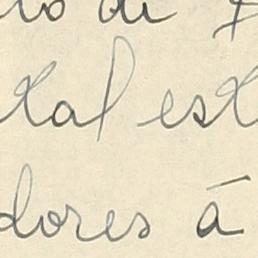 to de
tal est
dores á